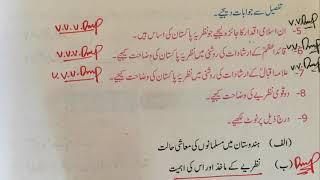 تفصیل سے جوابات دیجیے۔
V.V.V.Imp 5- ان اسلامی اقدار کا جائزہ لیجیے جو نظریہ پاکستان کی اساس ہیں۔ V.V.Imp
6- قائداعظمؒ کے ارشادات کی روشنی میں نظریہ پاکستان کی وضاحت کیجیے۔ V.V.V.Imp
V.V.V.Imp 7- علامہ اقبالؒ کے ارشادات کی روشنی میں نظریہ پاکستان کی وضاحت کیجیے۔
8- دو قومی نظریے کی وضاحت کیجیے۔
9- درج ذیل پر نوٹ لکھیے۔
(الف) ہندوستان میں مسلمانوں کی معاشی حالت
(ب) نظریے کے ماخذ اور اس کی اہمیت Imp